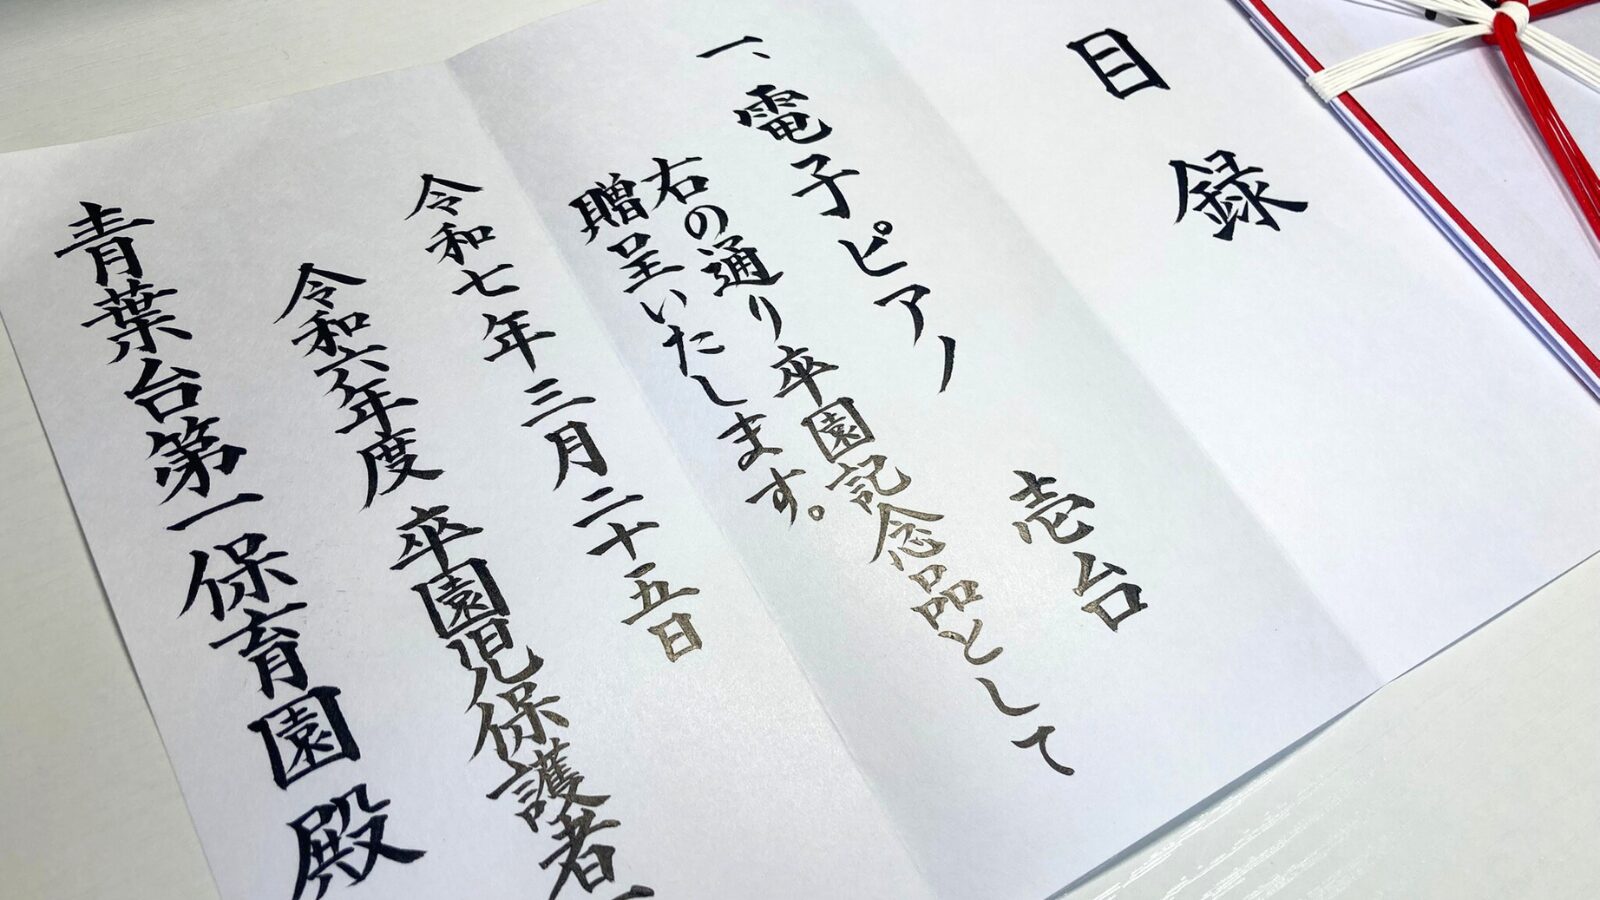 目録
一、電子ピアノ 壱台
右の通り卒園記念品として
贈呈いたします。
令和七年三月二十五日
令和六年度 卒園児保護者一
青葉台第一保育園殿